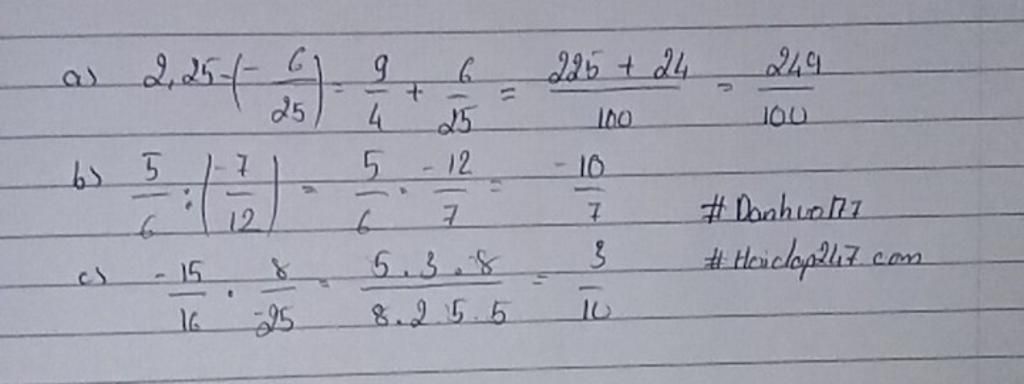 a) 2,25-(-6/25) = 9/4 + 6/25 = 225 + 24/100 = 249/100
b) 5/6 : (-7/12) = 5/6 . -12/7 = -10/7 #Danhvo177
c) -15/16 . 8/-25 = 5.3.8/8.2.5.5 = 3/10 #Hoidap247.com